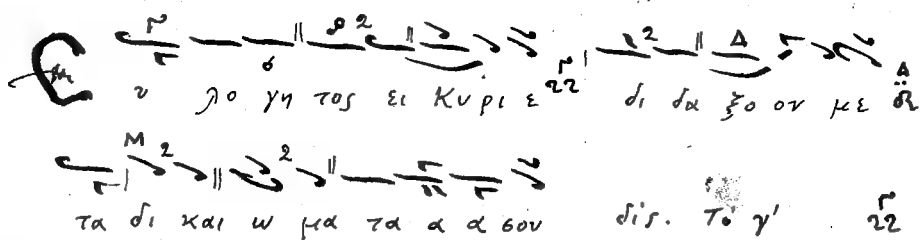 Ευ λο γη τος ει Κύ ρι ε δι δα ξο ον με
τα δι και ω μα τα α α σου δίς. Το γ'